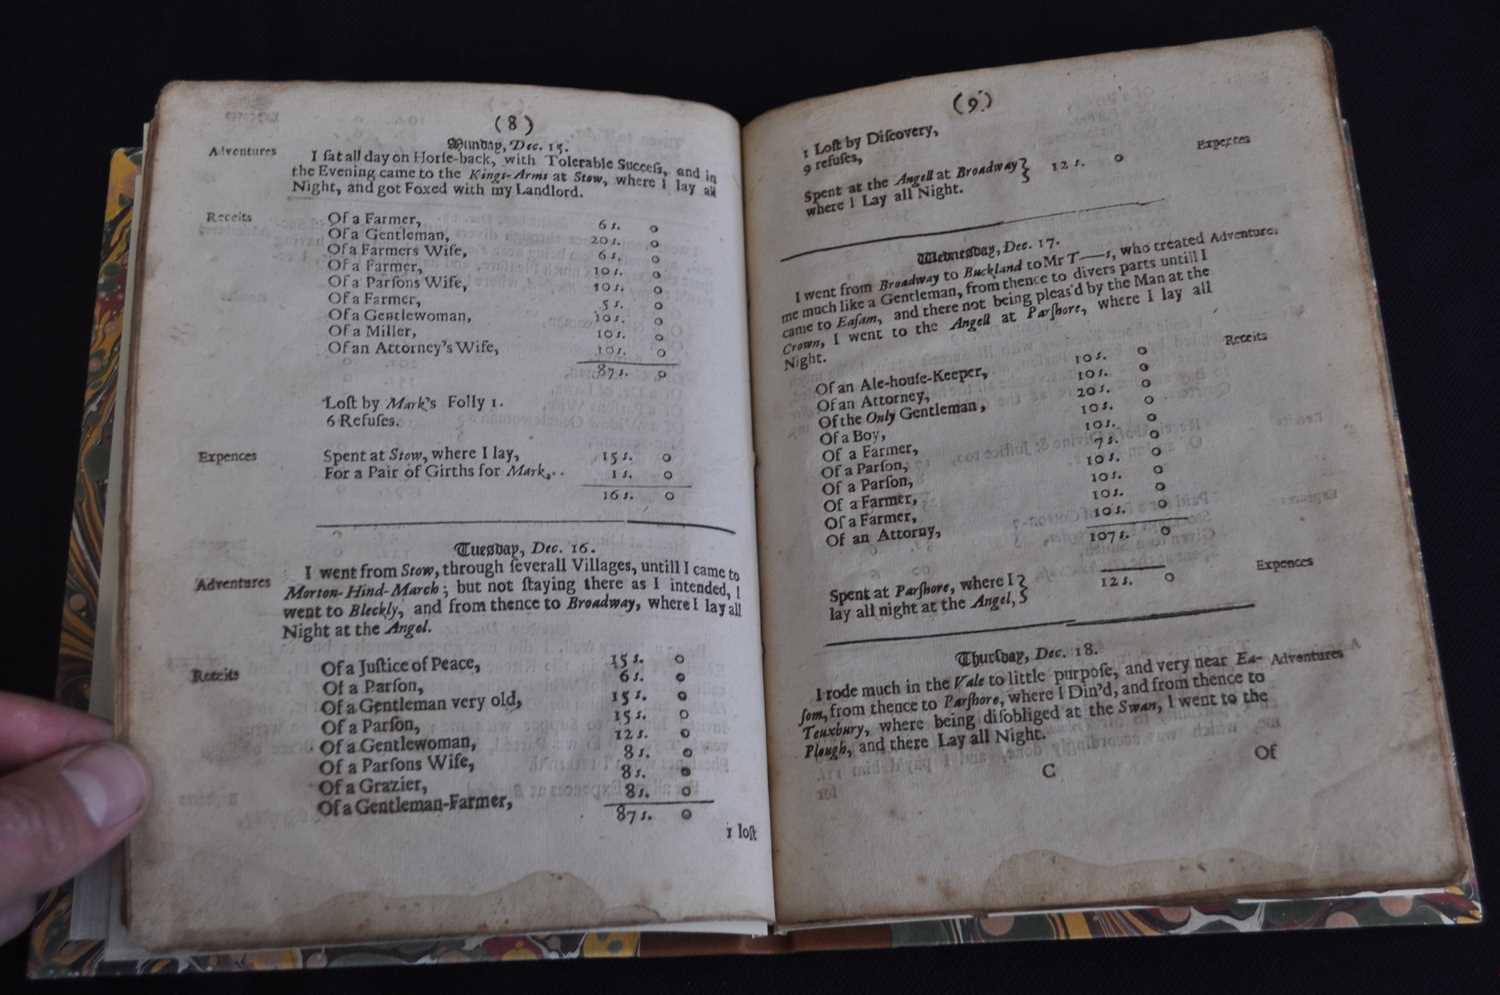 (8)
Munday, Dec. 15.
Adventures I ſat all day on Horſe-back, with Tolerable Succeſs, and in
the Evening came to the Kings-Arms at Stow, where I lay all
Night, and got Foxed with my Landlord.
Receits Of a Farmer, 6 s. 0
Of a Gentleman, 20 s. 0
Of a Farmers Wife, 6 s. 0
Of a Farmer, 10 s. 0
Of a Parſons Wife, 10 s. 0
Of a Farmer, 5 s. 0
Of a Gentlewoman, 10 s. 0
Of a Miller, 10 s. 0
Of an Attorney's Wife, 10 s. 0
87 s. 0
Loſt by Mark's Folly 1.
6 Refuſes.
Expences Spent at Stow, where I lay, 15 s. 0
For a Pair of Girths for Mark, .. 1 s. 0
16 s. 0
Tueſday, Dec. 16.
Adventures I went from Stow, through ſeverall Villages, untill I came to
Morton-Hind-March; but not ſtaying there as I intended, I
went to Bleckly, and from thence to Broadway, where I lay all
Night at the Angel.
Receits Of a Juſtice of Peace, 15 s. 0
Of a Parſon, 6 s. 0
Of a Gentleman very old, 15 s. 0
Of a Parſon, 15 s. 0
Of a Gentlewoman, 12 s. 0
Of a Parſons Wife, 8 s. 0
Of a Grazier, 8 s. 0
Of a Gentleman-Farmer, 8 s. 0
87 s. 0
1 loſt
(9)
1 Loſt by Diſcovery,
9 refuſes,
Spent at the Angell at Broadway } 12 s. 0 Expences
where I Lay all Night.
Wedneſday, Dec. 17.
I went from Broadway to Buckland to Mr T——s, who treated Adventure.
me much like a Gentleman, from thence to divers parts untill I
came to Eaſam, and there not being pleas'd by the Man at the
Crown, I went to the Angell at Parſhore, where I lay all
Night. Receits
Of an Ale-houſe-Keeper, 10 s. 0
Of an Attorney, 10 s. 0
Of the Only Gentleman, 20 s. 0
Of a Boy, 10 s. 0
Of a Farmer, 10 s. 0
Of a Parſon, 7 s. 0
Of a Parſon, 10 s. 0
Of a Farmer, 10 s. 0
Of a Farmer, 10 s. 0
Of an Attorny, 10 s. 0
107 s. 0
Spent at Parſhore, where I } 12 s. 0 Expences
lay all night at the Angel,
Thurſday, Dec. 18.
I rode much in the Vale to little purpoſe, and very near Ea- Adventures
ſom, from thence to Parſhore, where I Din'd, and from thence to
Teuxbury, where being diſobliged at the Swan, I went to the
Plough, and there Lay all Night.
C Of